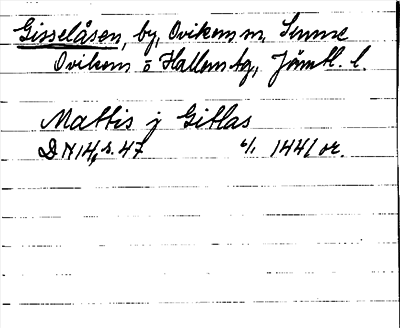 Gisselåsen, by, Ovikens sn, Sunne
Ovikens o Hallens tg, Jämtl. l.
Mattis j Gitlas
DN 14, s. 47 6/1 1441 or.